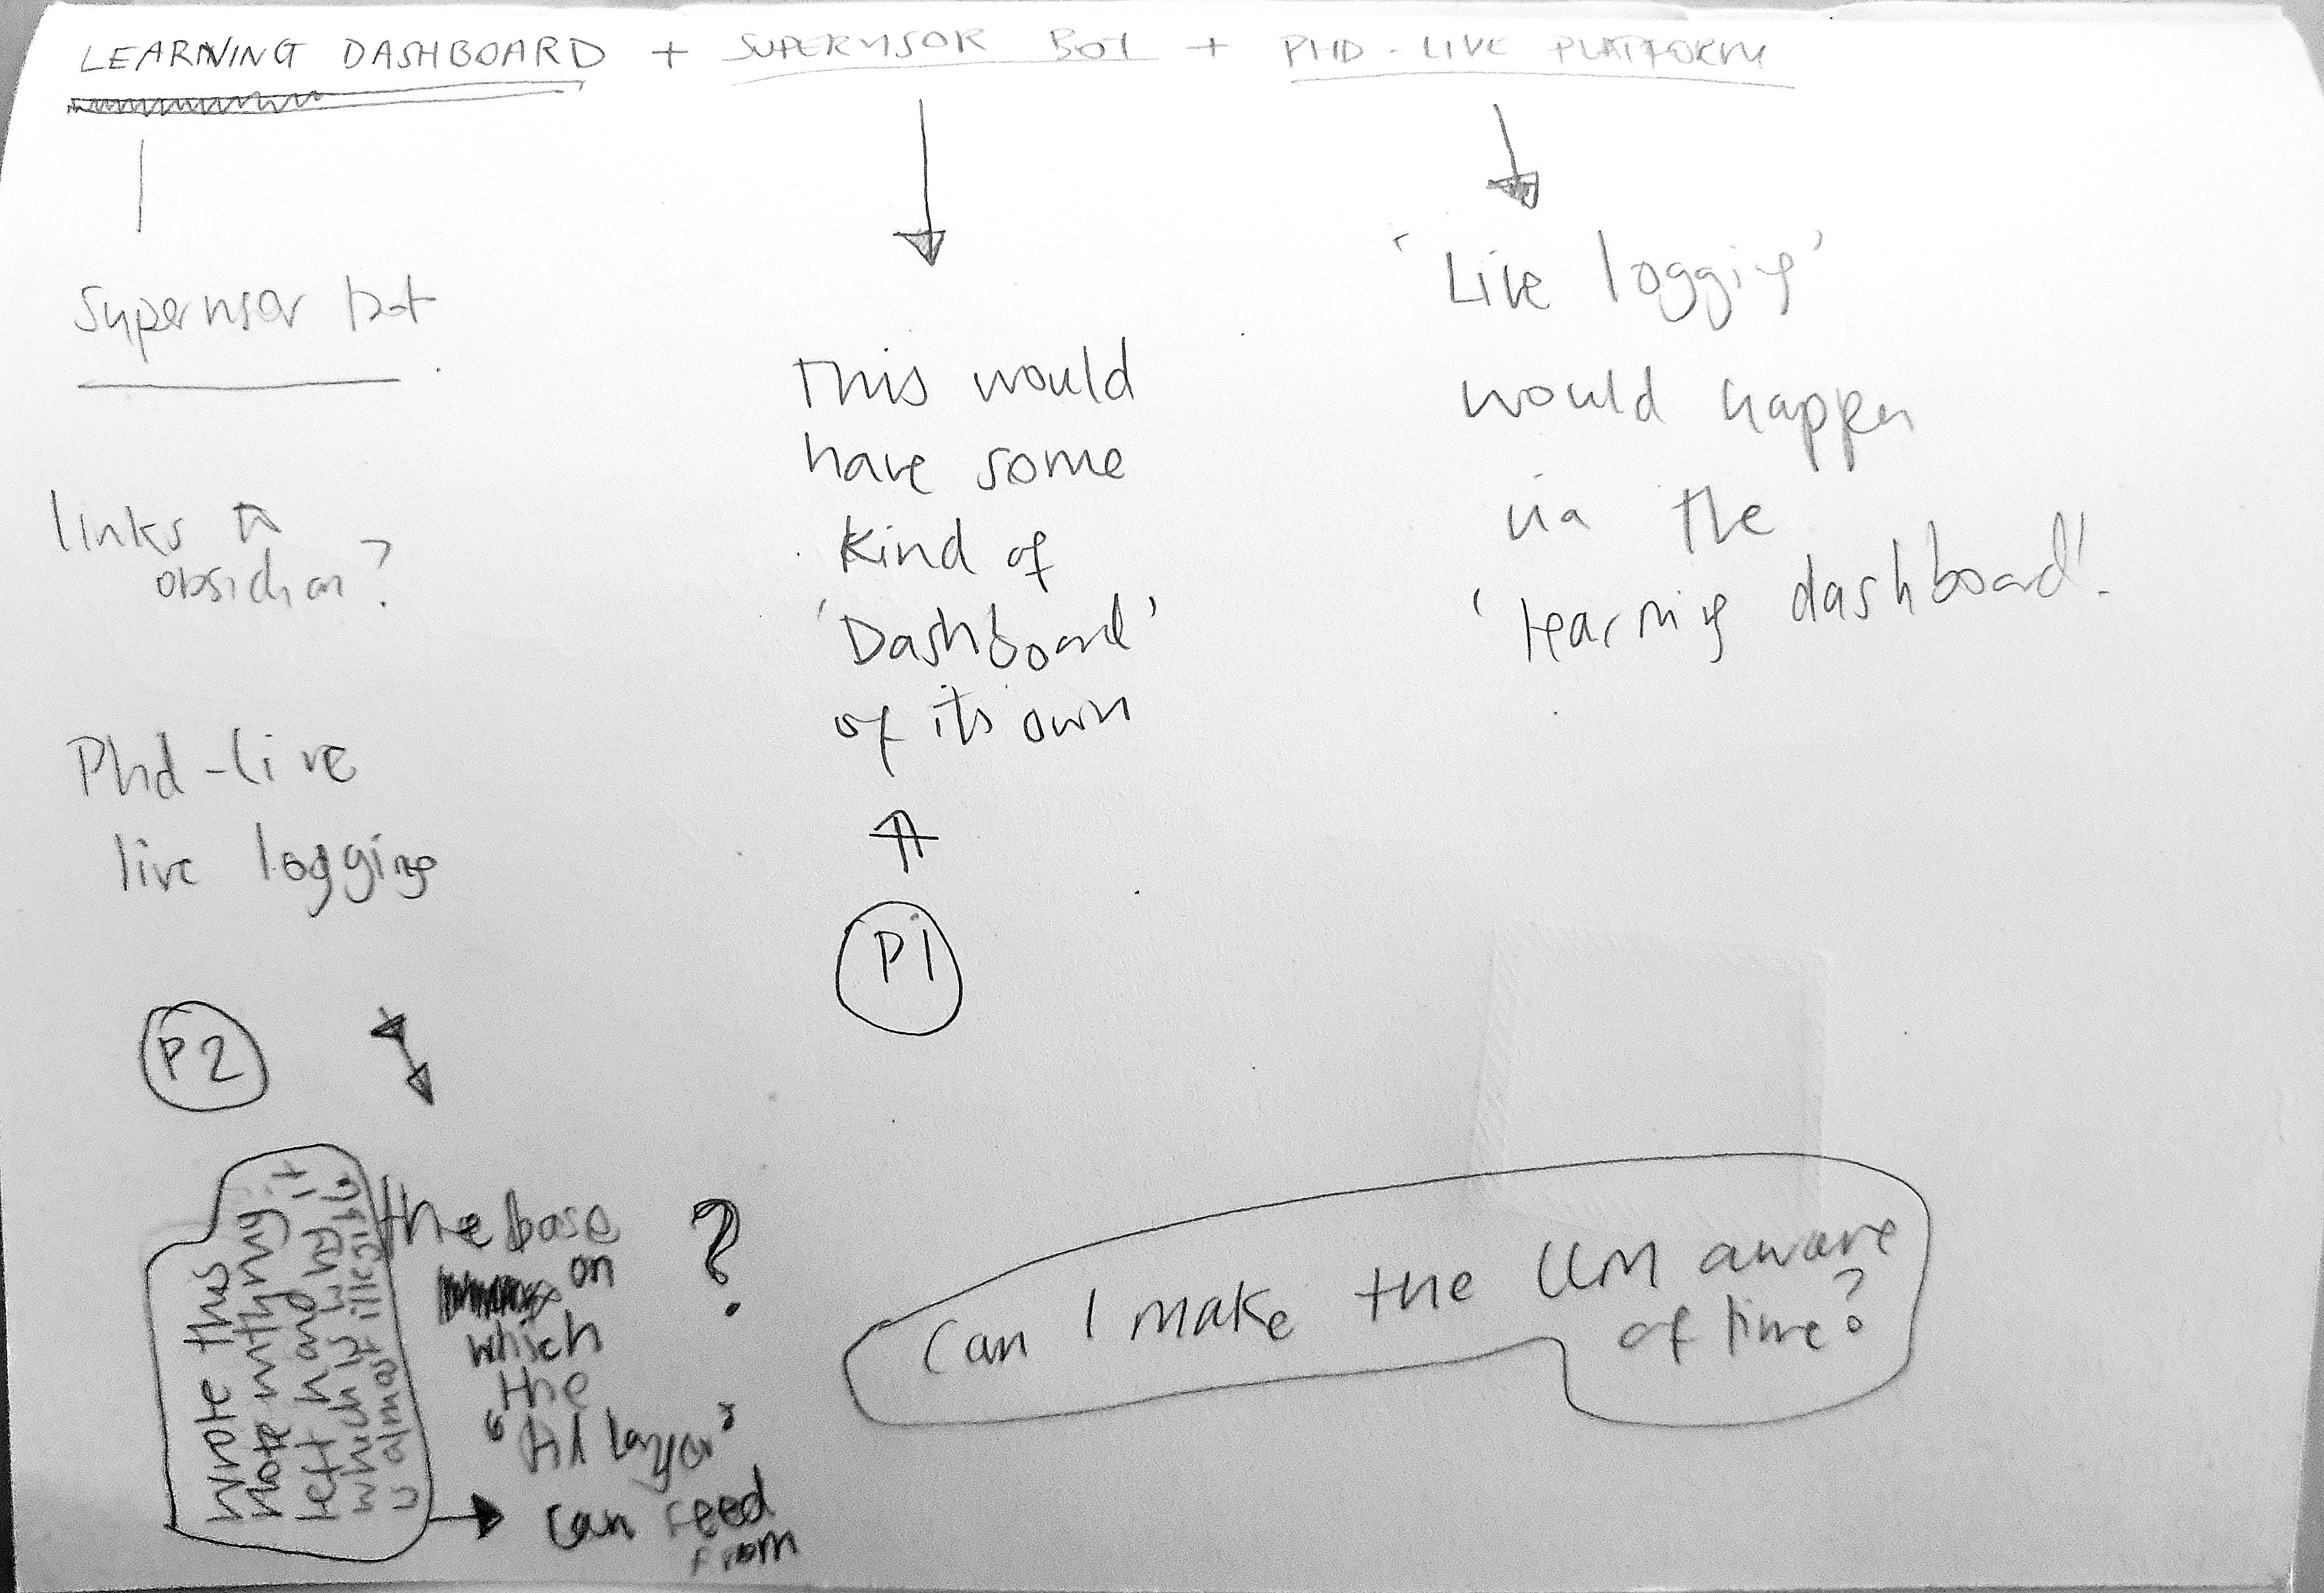 LEARNING DASHBOARD + SUPERVISOR BOT + PHD-LIVE PLATFORM
Supervisor bot
links to
obsidian?
Phd-live
live logging
P2
This would
have some
kind of
'Dashboard'
of its own
P1
'Live logging'
would happen
via the
'learning dashboard'.
wrote this
note with my
left hand
which is why it
is almost illegible
the base
on
which
the
layer"
can feed
from
?
Can I make the LLM aware
of time?